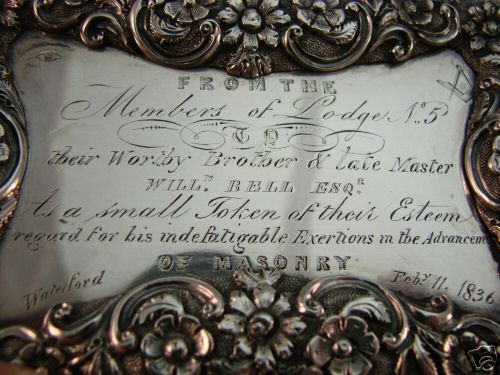 FROM THE
Members of Lodge No. 5
TO
their Worthy Brother & late Master
WILLM. BELL ESQR.
As a small Token of their Esteem
regard for his indefatigable Exertions in the Advancem
OF MASONRY
Waterford Feby. 11. 1836